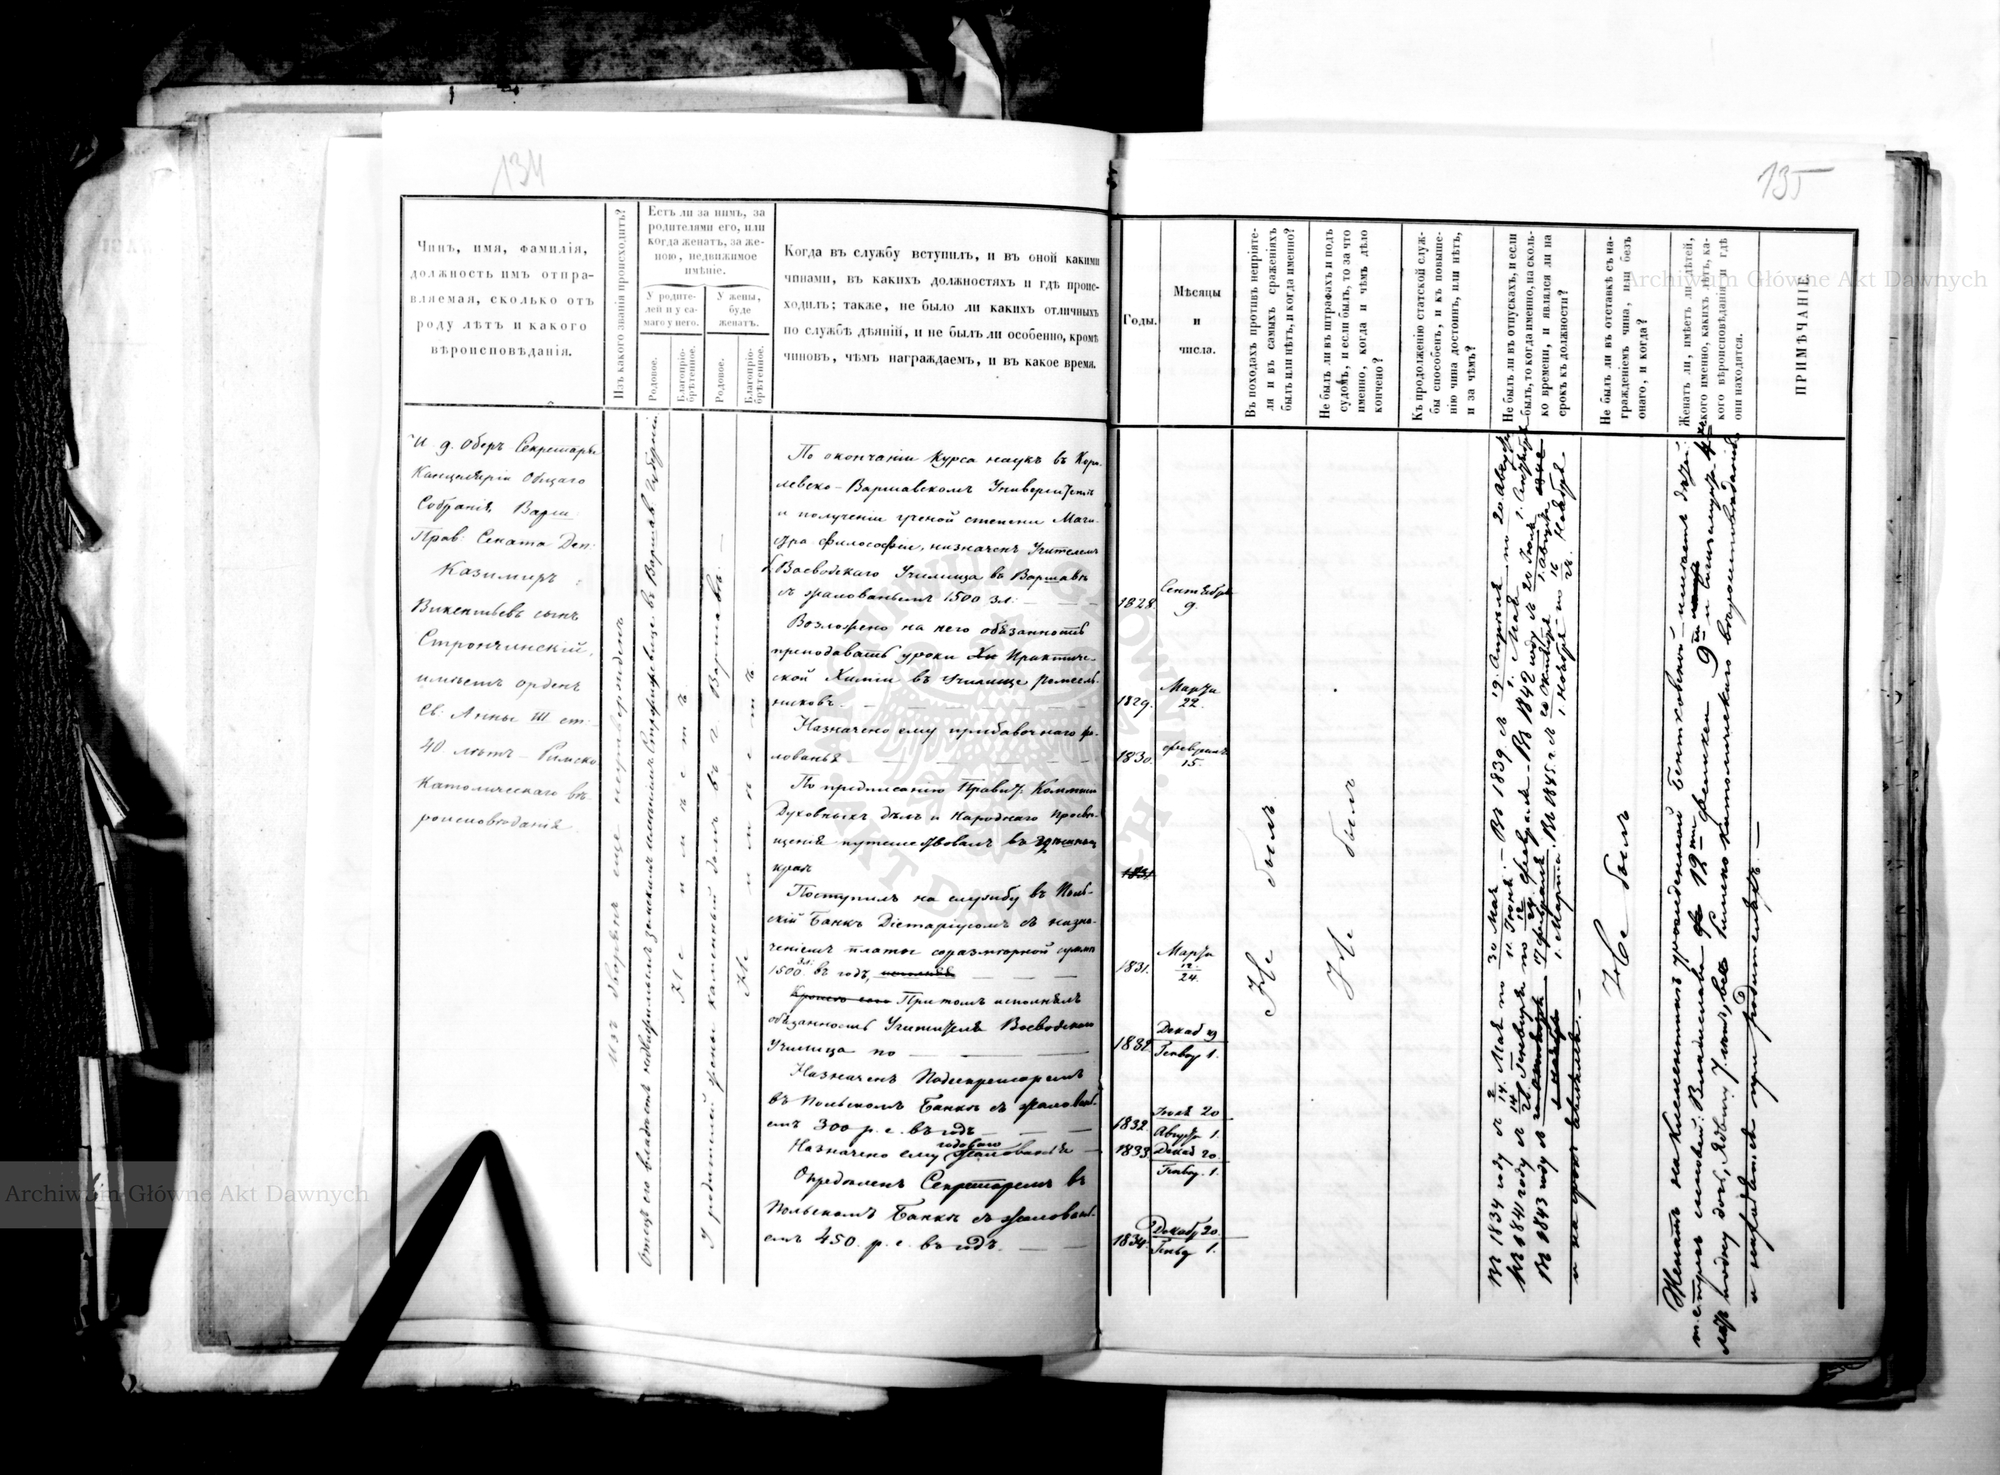 134
Чинъ, имя, фамилія,
должность имъ отпра-
вляемая, сколько отъ
роду лѣтъ и какого
вѣроисповѣданія.
Изъ какого званія происходитъ?
Есть ли за нимъ, за
родителями его, или
когда женатъ, за же-
ною, недвижимое
имѣніе.
У родите-
лей и у са-
маго у него.
У жены,
буде
женатъ.
Родовое.
Благопріо-
брѣтенное.
Родовое.
Благопріо-
брѣтенное.
Когда въ службу вступилъ, и въ оной какими
чинами, въ какихъ должностяхъ и гдѣ проис-
ходилъ; также, не было ли какихъ отличныхъ
по службѣ дѣяній, и не былъ ли особенно, кромѣ
чиновъ, чѣмъ награждаемъ, и въ какое время.
И. д. Оберъ Секретаря
Канцеляріи Общаго
Собранія Варш:
Прав: Сената Деп:
Казимиръ
Викентьевъ сынъ
Стрончинскій,
имѣетъ орденъ
Св: Анны III ст:
40 лѣтъ – Римско
Католическаго вѣ-
роисповѣданія.
Изъ дворянъ еще неутвержденъ
Отецъ его владѣетъ недвижимымъ земскимъ имѣніемъ въ Варшав: Губерніи
Не имѣетъ
У родителей жены каменный домъ въ г. Варшавѣ. —
Не имѣетъ
По окончаніи Курса наукъ въ Коро-
левско-Варшавскомъ Университетѣ
и полученіи ученой степени Маги-
стра Философіи, назначенъ Учителемъ
Воеводскаго Училища въ Варшавѣ
съ жалованьемъ 1500 зл: — — —
Возложено на него обязанность
преподавать уроки Практиче-
ской Химіи въ Училищѣ ремесль-
никовъ. — — — —
Назначено ему прибавочнаго жа-
лованья — — — —
По предписанію Правит: Коммисіи
Духовныхъ дѣлъ и Народнаго Просвѣ-
щенія путешествовалъ въ
краѣ
Поступилъ на службу въ Поль-
скій Банкъ Діетаріусомъ съ назна-
ченіемъ платы соразмѣрной суммѣ
1500 зл: въ годъ, — — —
Кромѣ сего При томъ исполнялъ
обязанность Учителя Воеводскаго
Училища по — — —
Назначенъ Подсекретаремъ
въ Польскомъ Банкѣ съ жаловань-
емъ 300 р. с. въ годъ — — —
годоваго
Назначено ему жалованья —
Опредѣленъ Секретаремъ въ
Польскомъ Банкѣ съ жаловань-
емъ 450 р. с. въ годъ. — —
135
Годы.
Мѣсяцы
и
числа.
Въ походахъ противъ непріяте-
ля и въ самыхъ сраженіяхъ
былъ или нѣтъ, и когда именно?
Не былъ ли въ штрафахъ и подъ
судомъ, и если былъ, то за что
именно, когда и чѣмъ дѣло
кончено?
Къ продолженію статской служ-
бы способенъ, и къ повыше-
нію чина достоинъ, или нѣтъ,
и за чѣмъ?
Не былъ ли въ отпускахъ, и если
былъ, то когда именно, на сколь-
ко времени, и явился ли на
срокъ къ должности?
Не былъ ли въ отставкѣ съ на-
гражденіемъ чина, или безъ
онаго, и когда?
Женатъ ли, имѣетъ ли дѣтей,
кого именно, какихъ лѣтъ, ка-
кого вѣроисповѣданія и гдѣ
они находятся.
ПРИМѢЧАНІЕ.
1828. Сентября
9.
1829. Марта
22.
1830. Февраля
15.
1831
1831. Марта
12
24.
1832 Декаб 19
Генвар 1.
1832. Іюля 20
Август 1.
1833 Декаб 20.
Генвар. 1.
1834. Декабр 20.
Генвар 1.
Не былъ.
Не былъ
Въ 1834 году съ 2/14 Мая по 30 Мая/11 Іюня. – Въ 1839 съ 19 Апрѣля/1. Мая по 20 Августа/1. Сентября
Въ 1841 году съ
Въ 1843 году съ
и на срокъ явился. —
Не былъ
Женатъ на Клементинѣ урожденной Бентковской имѣетъ дѣтей:
и находятся при родителяхъ. —
Archiwum Główne Akt Dawnych
Archiwum Główne Akt Dawnych
ARCHIWUM GŁÓWNE
AKT DAWNYCH